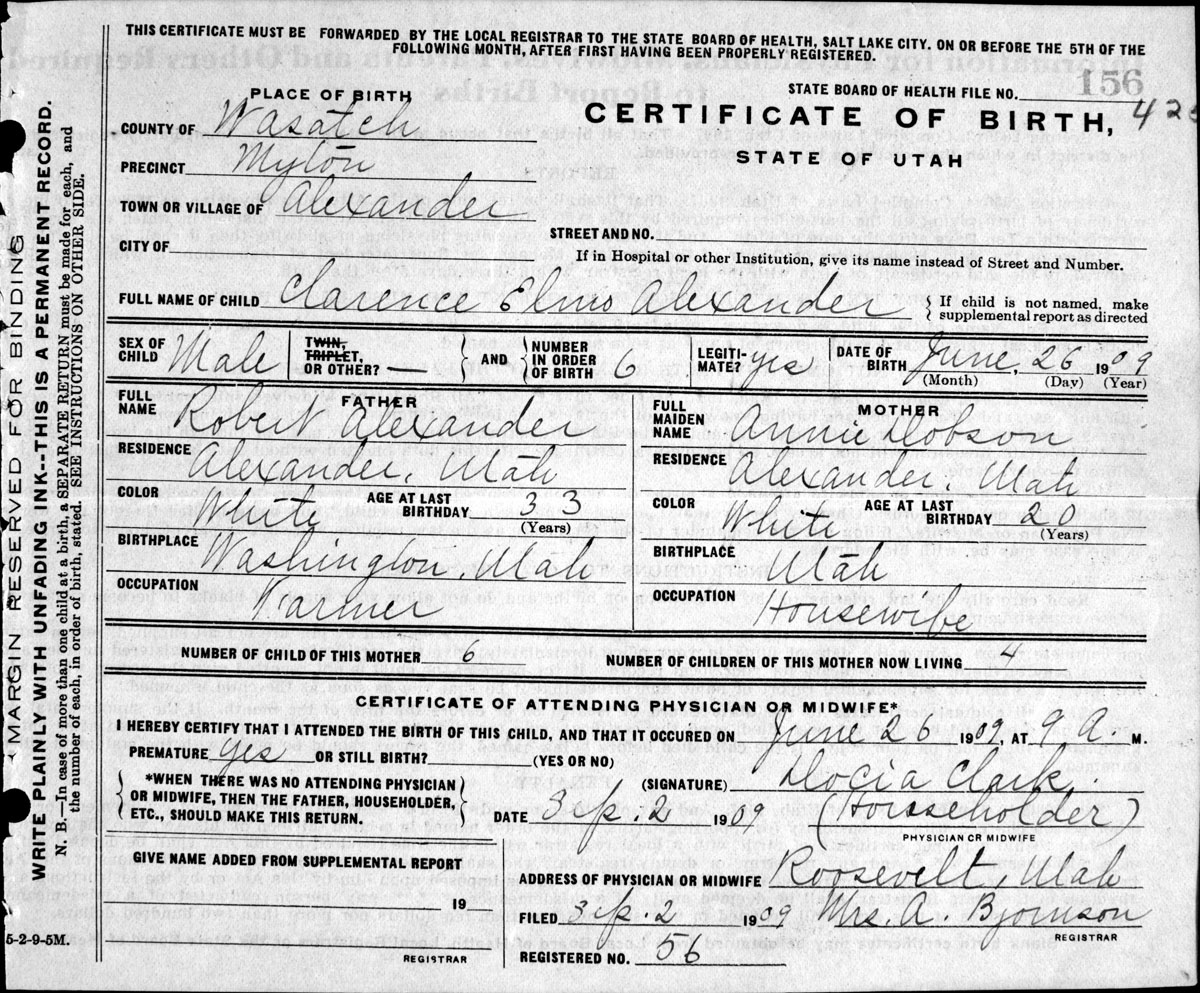 THIS CERTIFICATE MUST BE FORWARDED BY THE LOCAL REGISTRAR TO THE STATE BOARD OF HEALTH, SALT LAKE CITY. ON OR BEFORE THE 5TH OF THE
FOLLOWING MONTH, AFTER FIRST HAVING BEEN PROPERLY REGISTERED.
156
STATE BOARD OF HEALTH FILE NO.
PLACE OF BIRTH
CERTIFICATE OF BIRTH,
STATE OF UTAH
COUNTY OF Wasatch
PRECINCT Myton
TOWN OR VILLAGE OF Alexander
STREET AND NO.
CITY OF
If in Hospital or other Institution, give its name instead of Street and Number.
FULL NAME OF CHILD Clarence Elmo Alexander { If child is not named, make
supplemental report as directed
SEX OF CHILD Male TWIN, TRIPLET, OR OTHER? — AND NUMBER IN ORDER OF BIRTH 6 LEGITI-MATE? yes DATE OF BIRTH June, 26 1909
(Month) (Day) (Year)
FATHER
FULL NAME Robert Alexander
RESIDENCE Alexander, Utah
COLOR White AGE AT LAST BIRTHDAY 33
(Years)
BIRTHPLACE Washington, Utah
OCCUPATION Farmer
MOTHER
FULL MAIDEN NAME Annie Dobson
RESIDENCE Alexander, Utah
COLOR White AGE AT LAST BIRTHDAY 20
(Years)
BIRTHPLACE Utah
OCCUPATION Housewife
NUMBER OF CHILD OF THIS MOTHER 6 NUMBER OF CHILDREN OF THIS MOTHER NOW LIVING 4
CERTIFICATE OF ATTENDING PHYSICIAN OR MIDWIFE*
I HEREBY CERTIFY THAT I ATTENDED THE BIRTH OF THIS CHILD, AND THAT IT OCCURED ON June 26 1909, AT 9 A. M.
PREMATURE yes OR STILL BIRTH? (YES OR NO)
*WHEN THERE WAS NO ATTENDING PHYSICIAN
OR MIDWIFE, THEN THE FATHER, HOUSEHOLDER,
ETC., SHOULD MAKE THIS RETURN.
(SIGNATURE) Docia Clark.
DATE Sep. 2 1909 (Householder)
PHYSICIAN OR MIDWIFE
GIVE NAME ADDED FROM SUPPLEMENTAL REPORT
19
REGISTRAR
ADDRESS OF PHYSICIAN OR MIDWIFE Roosevelt, Utah
FILED Sep. 2 1909 Mrs. A. Bjornson
REGISTRAR
REGISTERED NO. 56
5-2-9-5M.
MARGIN RESERVED FOR BINDING
WRITE PLAINLY WITH UNFADING INK--THIS IS A PERMANENT RECORD.
N. B.—In case of more than one child at a birth, a SEPARATE RETURN must be made for each, and
the number of each, in order of birth, stated. SEE INSTRUCTIONS ON OTHER SIDE.